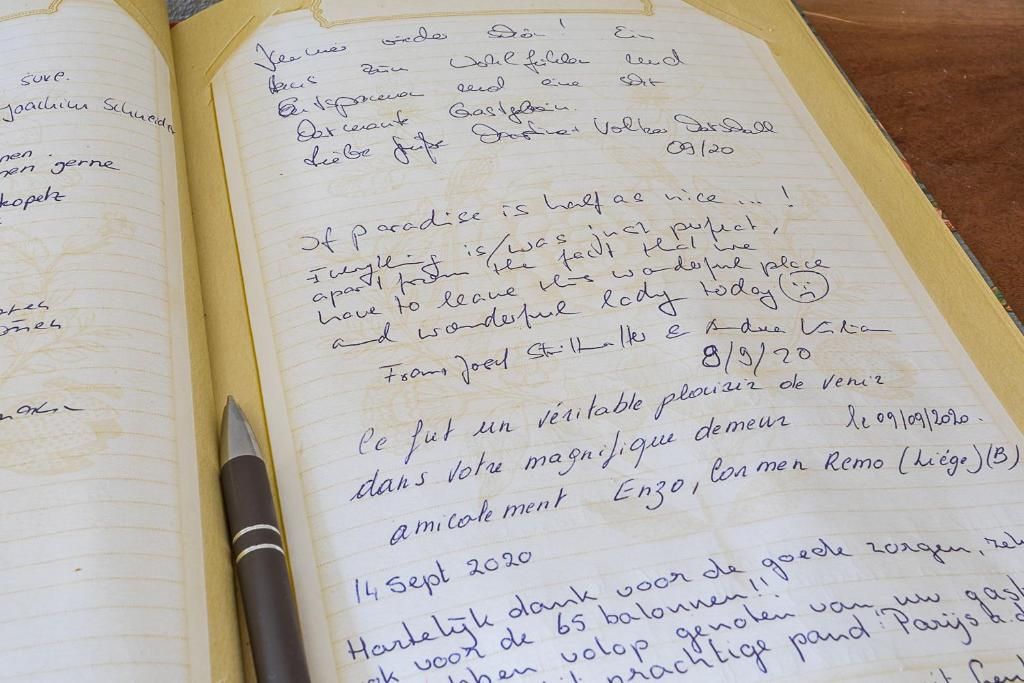 sure.
Joachim Schneider
nen
hen gerne
kopetz
Immer wieder schön! Ein
Haus zum Wohlfühlen und
Entspannen und eine sehr
charmante Gastgeberin.
Liebe Grüße Volker
09/20
If paradise is half as nice ... !
Everything is/was just perfect,
apart from the fact that we
have to leave this wonderful place
and wonderful lady today
Franz Josef &
8/9/20
Ce fut un véritable plaisir de venir
dans votre magnifique demeur le 09/09/2020.
amicalement Enzo, Carmen Remo (Liége) (B)
14 Sept 2020
Hartelijk dank voor de goede zorgen,
ok voor de 65 balonnen!!
bben volop genoten van uw gast
prachtige pand: Parijs a.d.